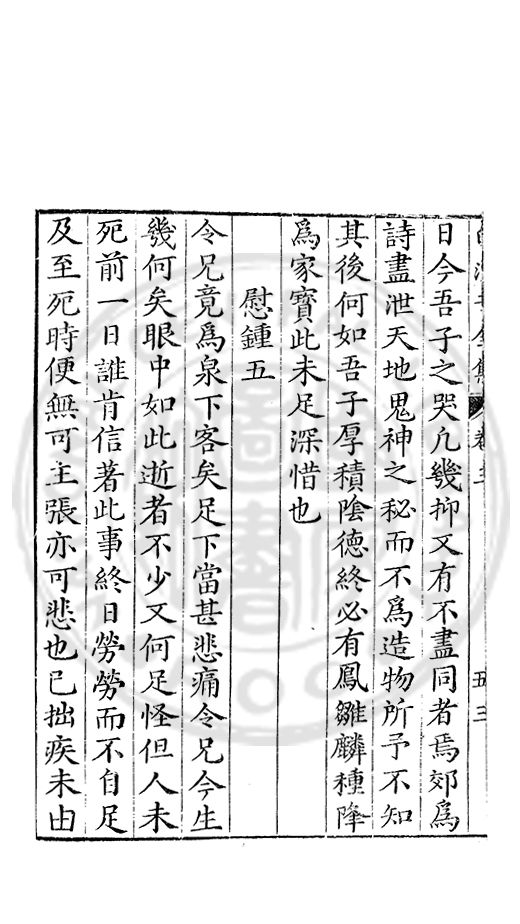 全集 卷
五三
日今吾子之哭凢幾抑又有不盡同者焉郊爲
詩盡泄天地鬼神之秘而不爲造物所予不知
其後何如吾子厚積陰德終必有鳳雛麟種降
爲家寳此未足深惜也
慰鍾五
令兄竟爲泉下客矣足下當甚悲痛令兄今生
幾何矣眼中如此逝者不少又何足怪但人未
死前一日誰肯信著此事終日勞勞而不自足
及至死時便無可主張亦可悲也已拙疾未由